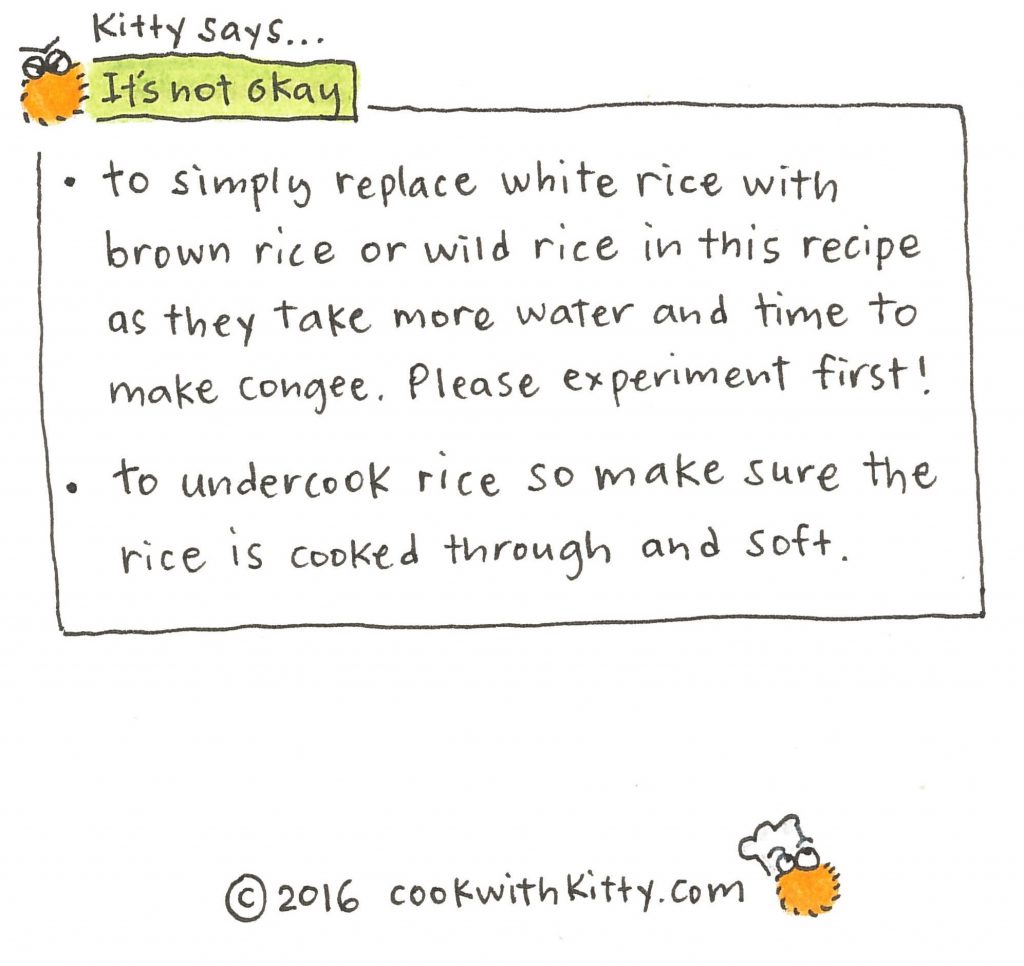 Kitty says...
It's not okay
• to simply replace white rice with
brown rice or wild rice in this recipe
as they take more water and time to
make congee. Please experiment first!
• to undercook rice so make sure the
rice is cooked through and soft.
© 2016 cookwithkitty.com